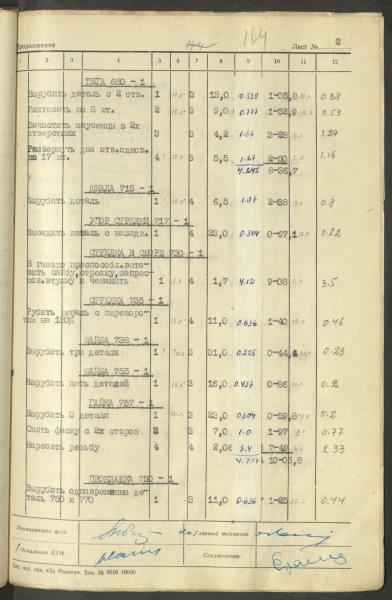 Продолжение 164 Лист № 2
1 2 3 4 5 6 7 8 9 10 11 12
ТЯГА 680 - 1
Вырубить деталь с 2 отв. 1 3 13,0 0.538 1-05,8 0.38
Рихтовать по 8 шт. 2 3 9,0 0.777 1-52,9 0.53
Зачистить заусенцы в 2х
отверстиях 3 3 4,2 1.66 3-28 1.27
Развернуть два отв.однов.
по 17 шт. 4 3 5,5 1.27 2-50 1.16
4.245 8-36,7
ШКАЛА 715 - 1
Вырубить деталь 5 4 6,5 1.07 2-38 0.8
УПОР СТРЕЛКИ 717 - 1
Высадить деталь с наладк. 1 4 23,0 0.304 0-67,1 0.22
СТРЕЛКА В СБОРЕ 730 - 1
В гнездо приспособл.вста-
вить шайбу,стрелку,запрес-
сов.втулку и чеканить 1 3 1,7 4.12 9-08 3.5
СТРЕЛКА 735 - 1
Рубить деталь с переворо-
том на 180% 1 4 11,0 0.636 1-40 0.46
ШАЙБА 738 - 1
Вырубить три детали 1 3 31,0 0.225 0-44,1 0.23
ШАЙБА 755 - 1
Вырубить пять деталей 1 3 16,0 0.437 0-86 0.2
ГАЙКА 757 - 1
Вырубить 3 детали 1 3 23,0 0.304 0-59,8 0.2
Снять фаску с 2х сторон 3 3 7,0 1.0 1-97 0.77
Нарезать резьбу 4 4 2,06 3.4 7-49 2.33
4.704 10-05,8
ПРОКЛАДКА 750 - 1
Вырубить одновременно де-
таль 750 и 770 1 3 11,0 0.636 1-25 0.44
Нормировщик цеха Главный технолог
Начальник БТЗ Согласовано: